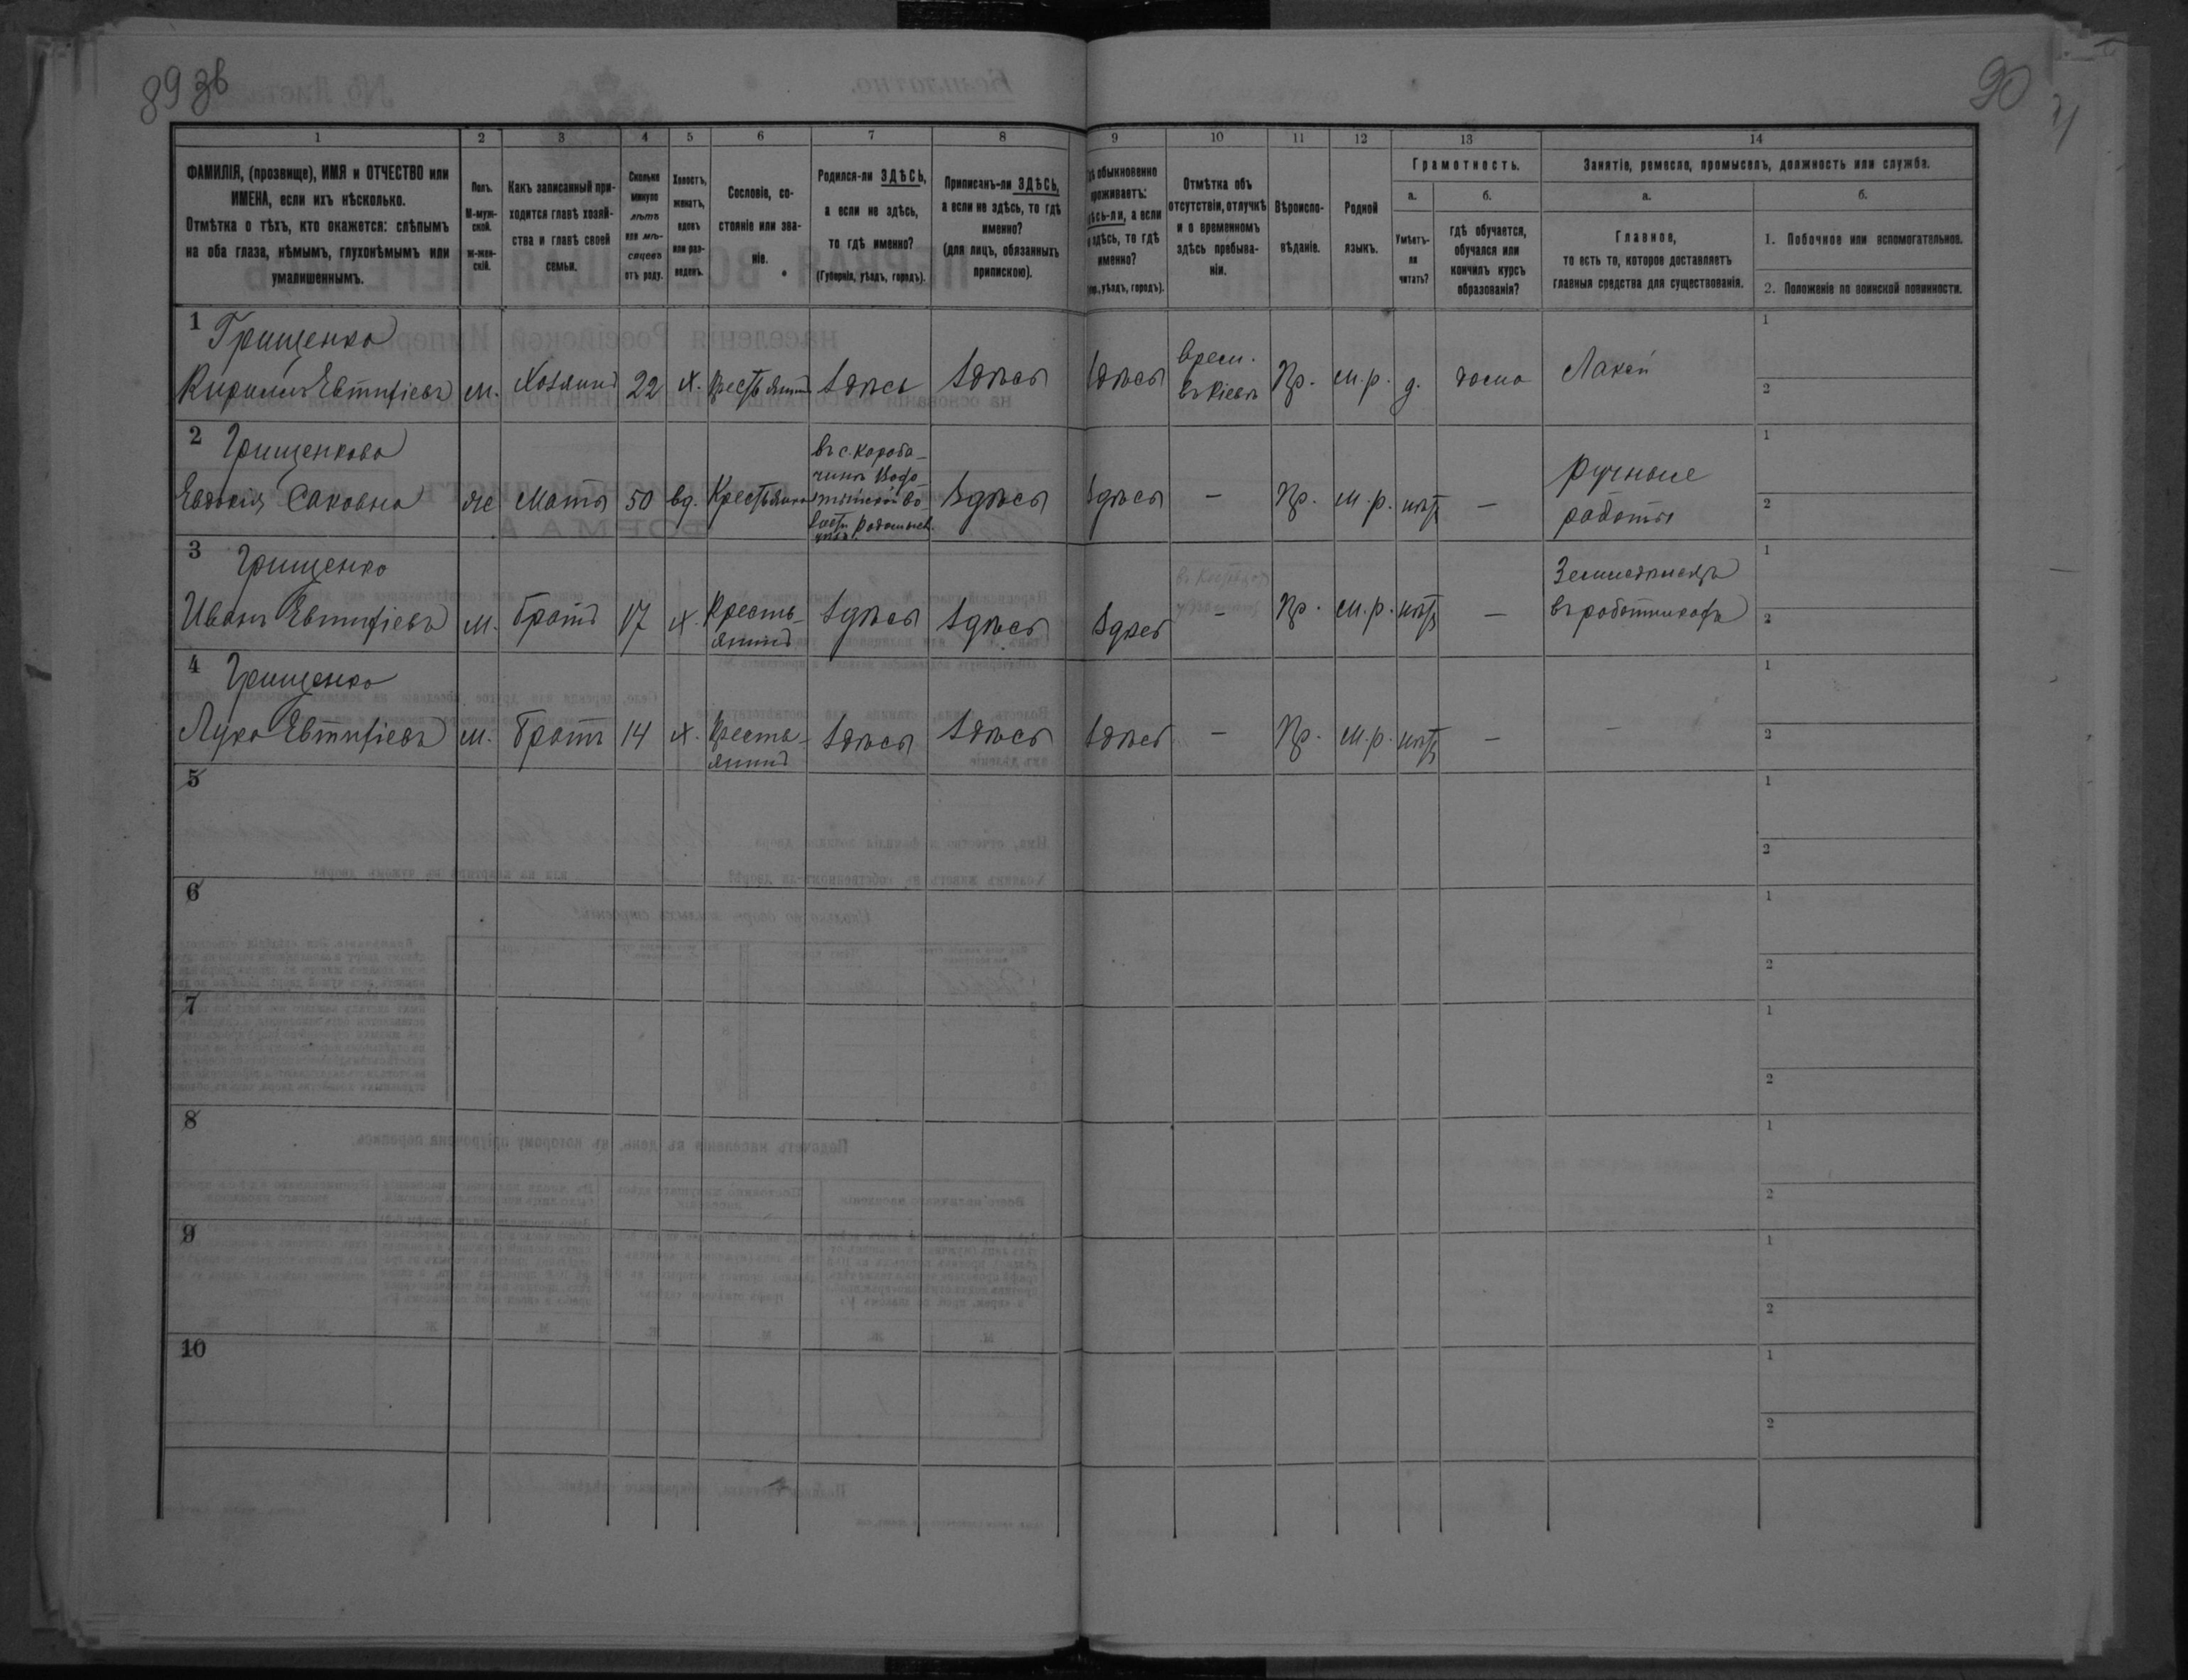 89 зв
90
1 2 3 4 5 6 7 8 9 10 11 12 13 14
ФАМИЛІЯ, (прозвище), ИМЯ и ОТЧЕСТВО или
ИМЕНА, если ихъ нѣсколько.
Отмѣтка о тѣхъ, кто окажется: слѣпымъ
на оба глаза, нѣмымъ, глухонѣмымъ или
умалишеннымъ.
Полъ.
М-муж-
ской.
ж-жен-
скій.
Какъ записанный при-
ходится главѣ хозяй-
ства и главѣ своей
семьи.
Сколько
минуло
лѣтъ
или мѣ-
сяцевъ
отъ роду.
Холостъ,
женатъ,
вдовъ
или раз-
веденъ.
Сословіе, со-
стояніе или зва-
ніе.
Родился-ли ЗДѢСЬ,
а если не здѣсь,
то гдѣ именно?
(Губернія, уѣздъ, городъ).
Приписанъ-ли ЗДѢСЬ,
а если не здѣсь, то гдѣ
именно?
(для лицъ, обязанныхъ
припискою).
обыкновенно
проживаетъ:
а если
здѣсь, то гдѣ
именно?
уѣздъ, городъ).
Отмѣтка объ
отсутствіи, отлучкѣ
и о временномъ
здѣсь пребыва-
ніи.
Вѣроиспо-
вѣданіе.
Родной
языкъ.
Грамотность.
а.
Умѣетъ-
ли
читать?
б.
гдѣ обучается,
обучался или
кончилъ курсъ
образованія?
Занятіе, ремесло, промыселъ, должность или служба.
а.
Главное,
то есть то, которое доставляетъ
главныя средства для существованія.
б.
1. Побочное или вспомогательное.
2. Положеніе по воинской повинности.
1 Грищенко
Кирилъ Евтифіевъ м. Хозяинъ 22 х. Крестьянинъ здѣсь здѣсь здѣсь
врем.
въ Кіевѣ
Пр. м.р. д. дома Лакей
1
2
2 Грищенкова
Евдокія Саковна ж Мать 50 вд. Крестьянка
въ с. Короба-
чинѣ
здѣсь здѣсь – Пр. м.р. нѣтъ –
ручныые
работы
1
2
3 Грищенко
Иванъ Евтифіевъ м. братъ 17 х.
Кресть-
янинъ
здѣсь здѣсь здѣсь – Пр. м.р. нѣтъ –
въ работникахъ
1
2
4 Грищенко
Лука Евтифіевъ м. братъ 14 х.
Кресть-
янинъ
здѣсь здѣсь здѣсь – Пр. м.р. нѣтъ – –
1
2
5
1
2
6
1
2
7
1
2
8
1
2
9
1
2
10
1
2